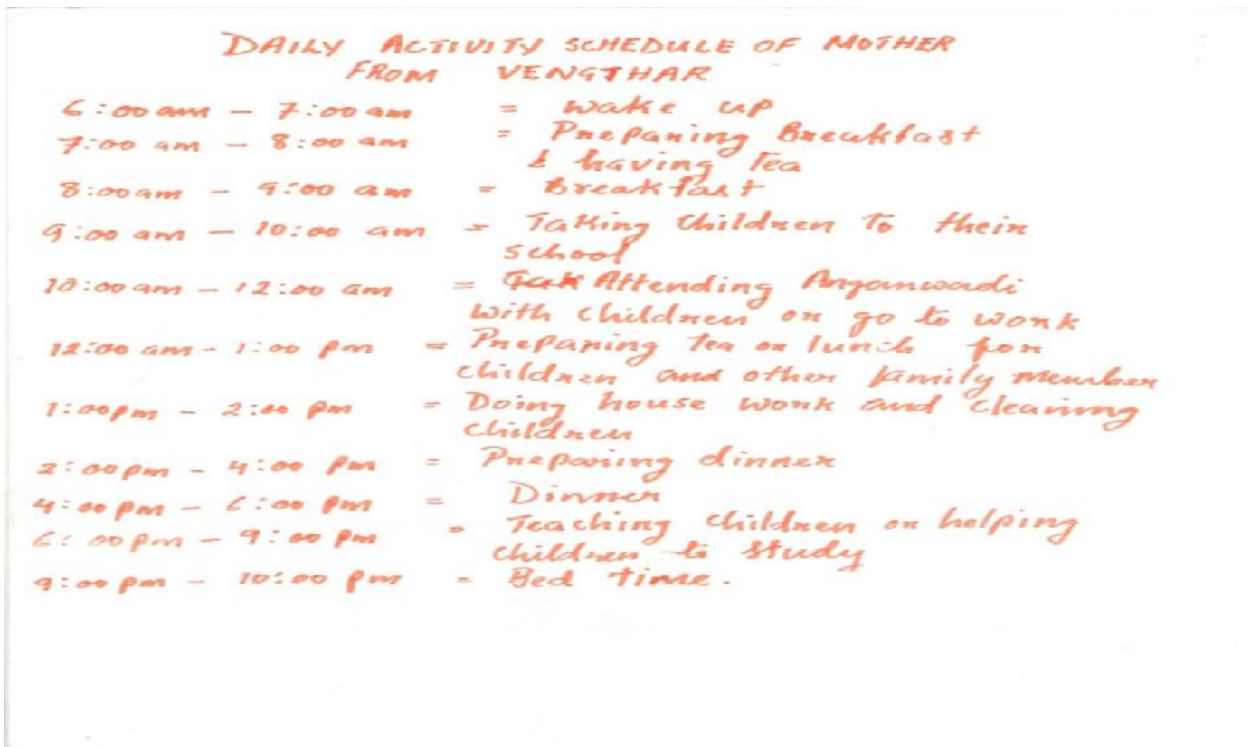 DAILY ACTIVITY SCHEDULE OF MOTHER
FROM VENGTHAR
6:00 am - 7:00 am = Wake up
7:00 am - 8:00 am = Preparing Breakfast
& having Tea
8:00 am - 9:00 am = Breakfast
9:00 am - 10:00 am = Taking Children To their
School
10:00 am - 12:00 am = Attending Anganwadi
with children or go to work
12:00 am - 1:00 pm = Preparing tea or lunch for
children and other family member
1:00 pm - 2:00 pm = Doing house work and cleaning
children
2:00 pm - 4:00 pm = Preparing dinner
4:00 pm - 6:00 pm = Dinner
6:00 pm - 9:00 pm = Teaching children or helping
children to study
9:00 pm - 10:00 pm = Bed time.